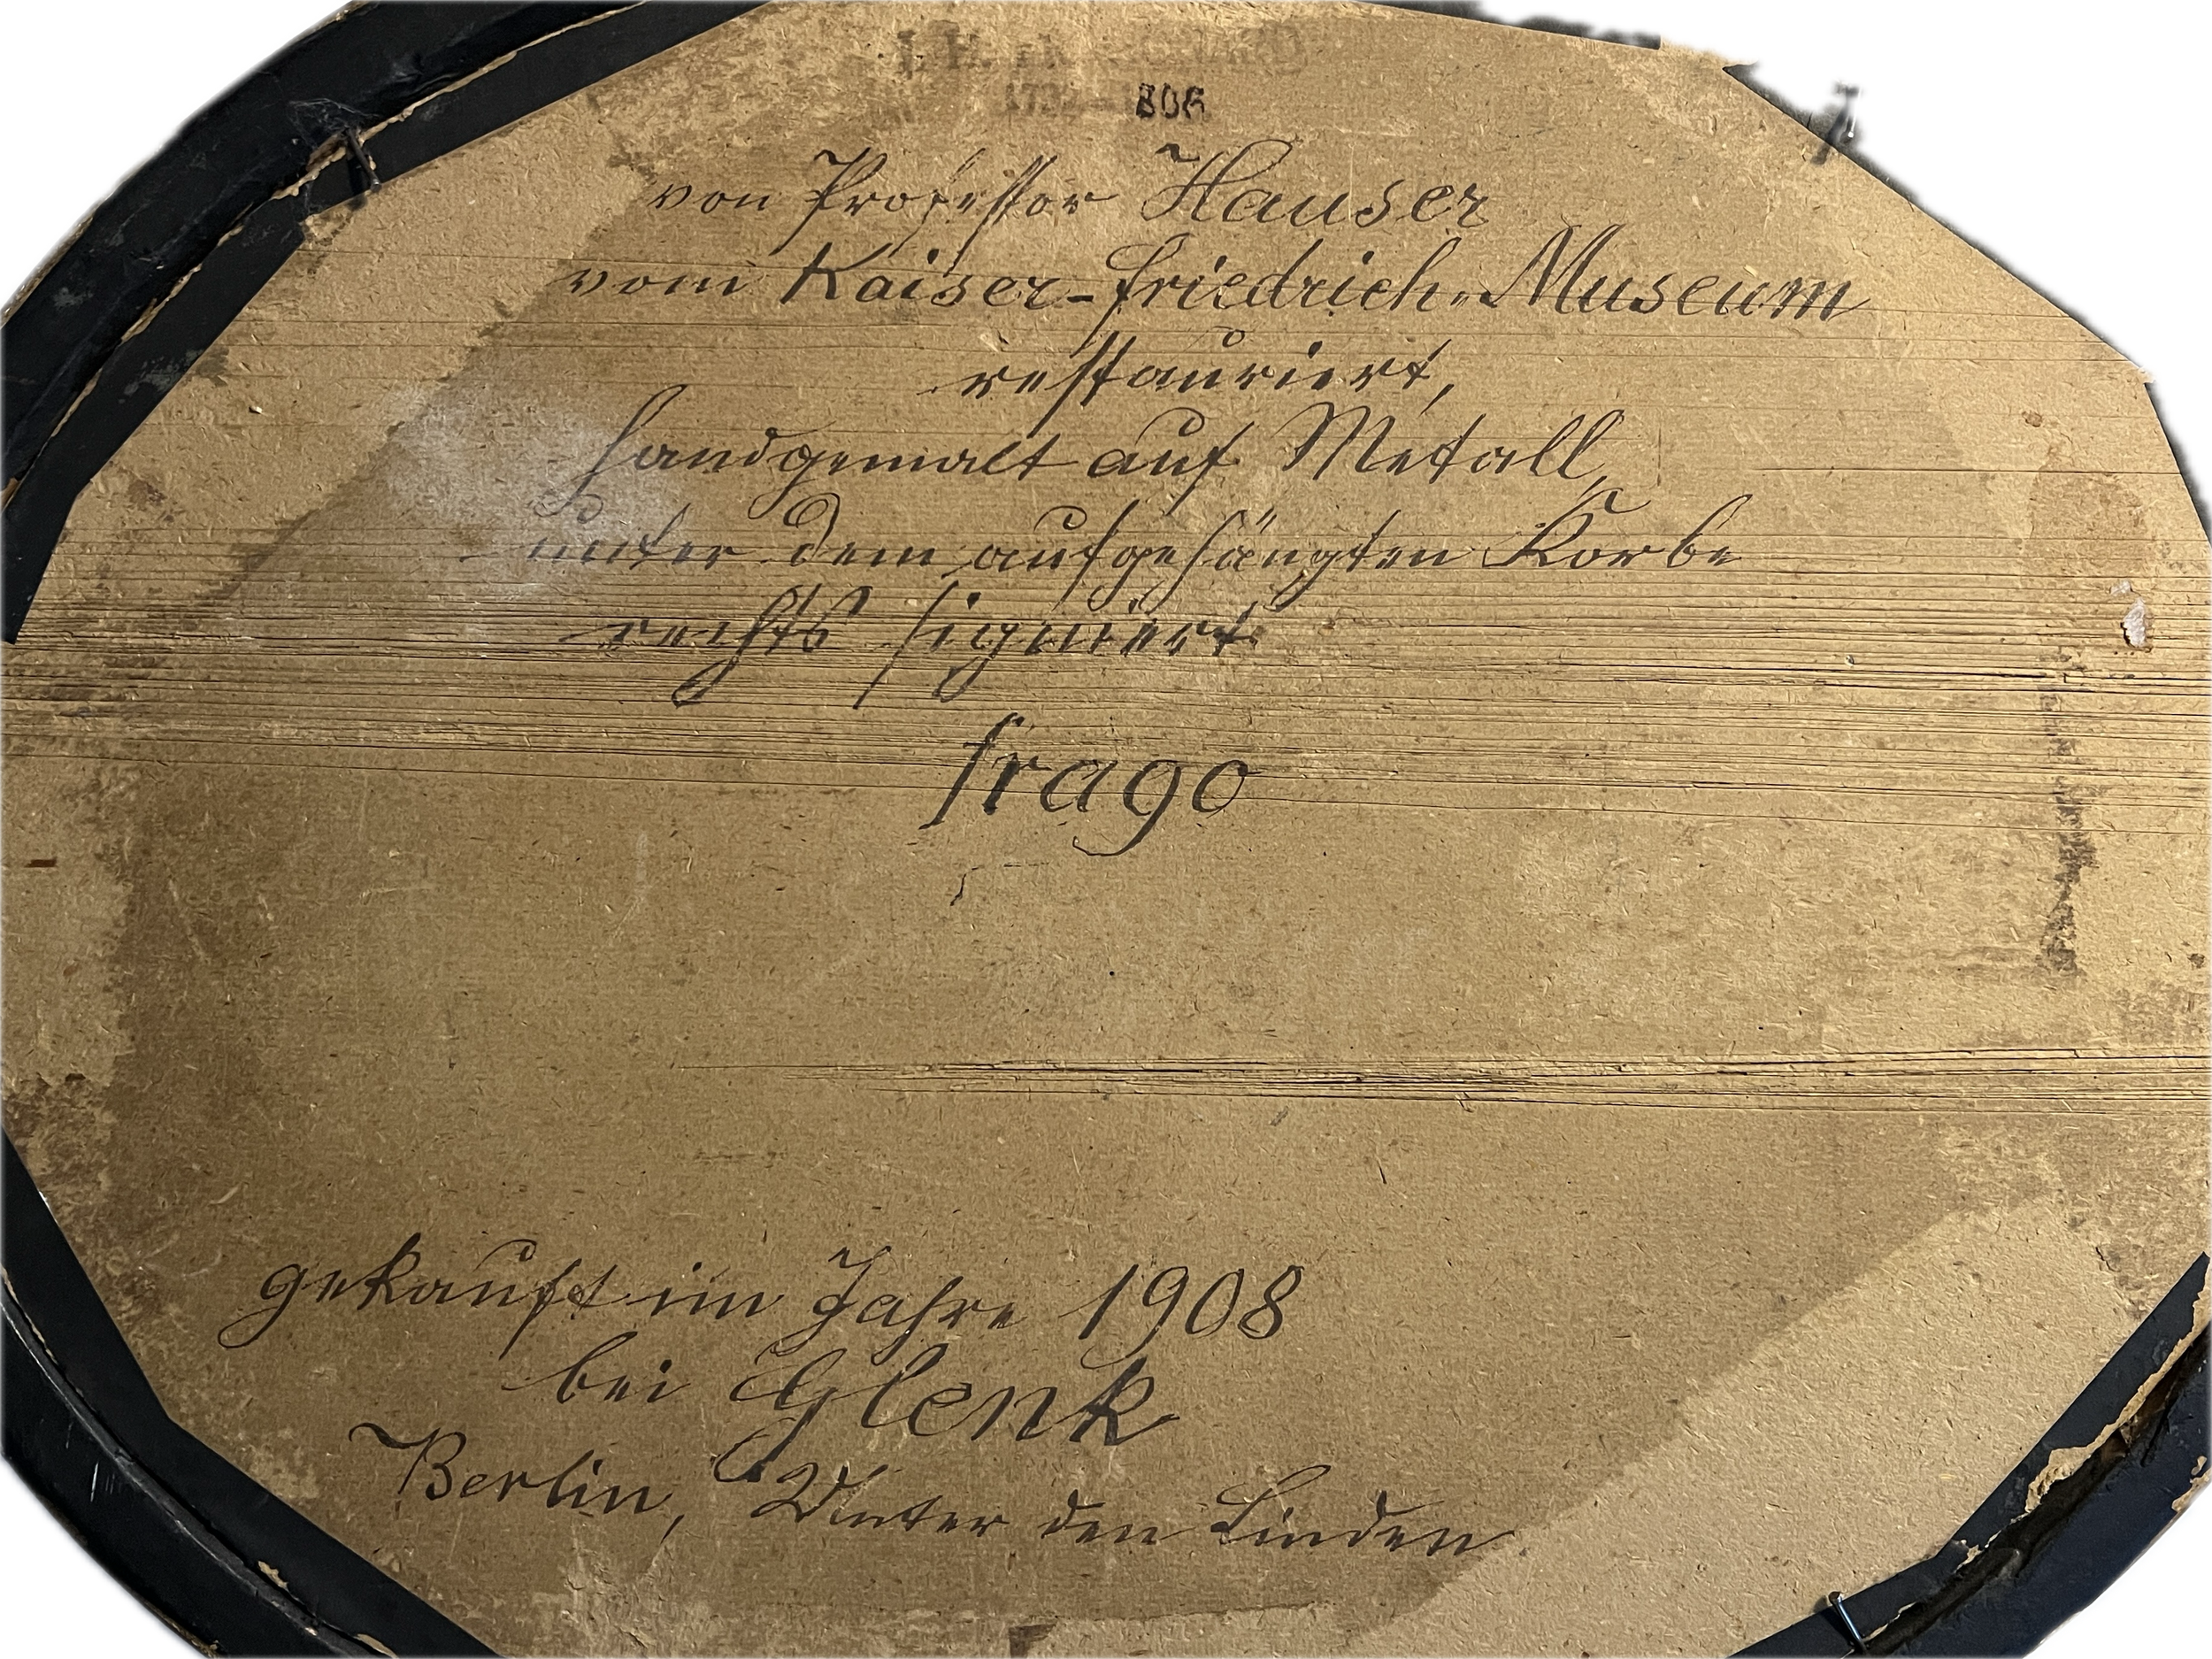 806
von Professor Hauser
vom Kaiser-Friedrich-Museum
restauriert,
handgemalt auf Metall,
unter dem aufgehängten Korbe
rechts signiert
frago
gekauft im Jahre 1908
bei Glenk
Berlin, Unter den Linden.